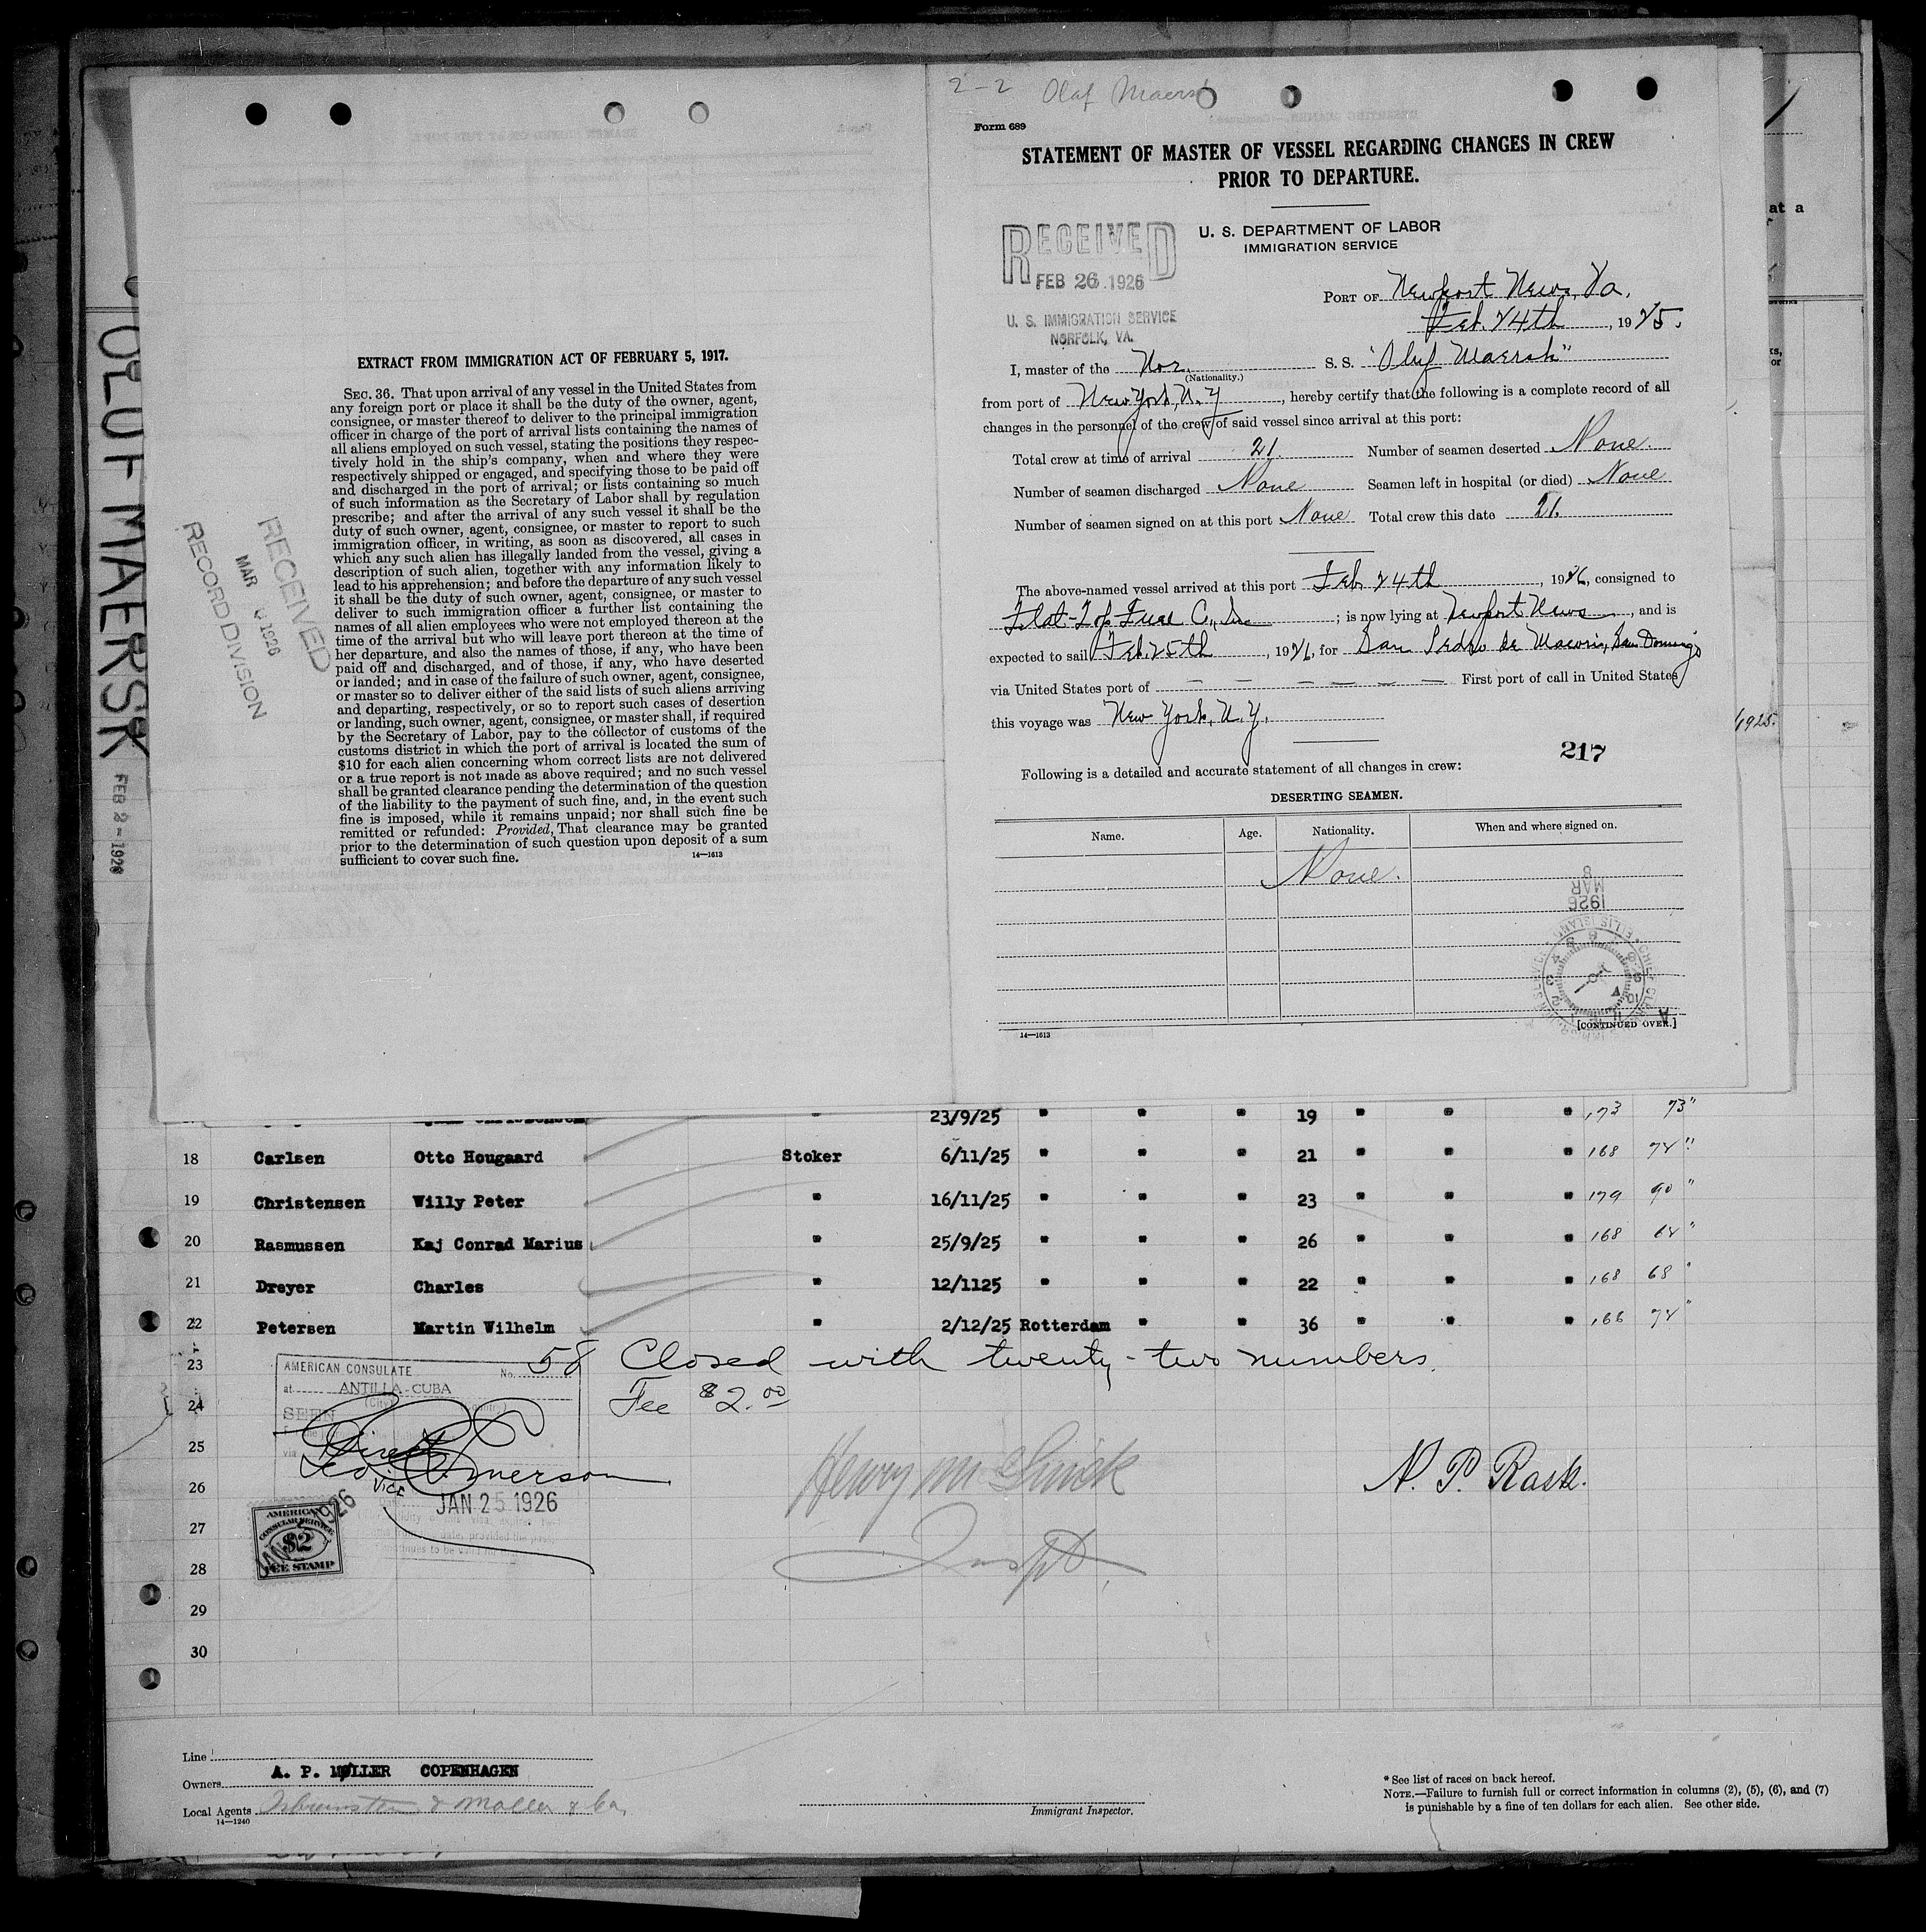 OLUF MAERSK
FEB 2-1926
EXTRACT FROM IMMIGRATION ACT OF FEBRUARY 5, 1917.
SEC. 36. That upon arrival of any vessel in the United States from
any foreign port or place it shall be the duty of the owner, agent,
consignee, or master thereof to deliver to the principal immigration
officer in charge of the port of arrival lists containing the names of
all aliens employed on such vessel, stating the positions they respec-
tively hold in the ship's company, when and where they were
respectively shipped or engaged, and specifying those to be paid off
and discharged in the port of arrival; or lists containing so much
of such information as the Secretary of Labor shall by regulation
prescribe; and after the arrival of any such vessel it shall be the
duty of such owner, agent, consignee, or master to report to such
immigration officer, in writing, as soon as discovered, all cases in
which any such alien has illegally landed from the vessel, giving a
description of such alien, together with any information likely to
lead to his apprehension; and before the departure of any such vessel
it shall be the duty of such owner, agent, consignee, or master to
deliver to such immigration officer a further list containing the
names of all alien employees who were not employed thereon at the
time of the arrival but who will leave port thereon at the time of
her departure, and also the names of those, if any, who have been
paid off and discharged, and of those, if any, who have deserted
or landed; and in case of the failure of such owner, agent, consignee,
or master so to deliver either of the said lists of such aliens arriving
and departing, respectively, or so to report such cases of desertion
or landing, such owner, agent, consignee, or master shall, if required
by the Secretary of Labor, pay to the collector of customs of the
customs district in which the port of arrival is located the sum of
$10 for each alien concerning whom correct lists are not delivered
or a true report is not made as above required; and no such vessel
shall be granted clearance pending the determination of the question
of the liability to the payment of such fine, and, in the event such
fine is imposed, while it remains unpaid; nor shall such fine be
remitted or refunded: Provided, That clearance may be granted
prior to the determination of such question upon deposit of a sum
sufficient to cover such fine.
14—1613
RECEIVED
MAR 1926
RECORD DIVISION
2-2 Olaf Maersk
Form 689
STATEMENT OF MASTER OF VESSEL REGARDING CHANGES IN CREW
PRIOR TO DEPARTURE.
U. S. DEPARTMENT OF LABOR
IMMIGRATION SERVICE
RECEIVED
FEB 26 1926
U. S. IMMIGRATION SERVICE
NORFOLK, VA.
PORT OF Newport News, Va.
Feb. 24th, 1925.
I, master of the Nor. S. S. "Oluf Maersk"
(Nationality.)
from port of New York, N. Y, hereby certify that the following is a complete record of all
changes in the personnel of the crew of said vessel since arrival at this port:
Total crew at time of arrival 21. Number of seamen deserted None.
Number of seamen discharged None Seamen left in hospital (or died) None
Number of seamen signed on at this port None Total crew this date 21.
The above-named vessel arrived at this port Feb. 24th, 1926, consigned to
Flat-Top Fuel C., Inc; is now lying at Newport News, and is
expected to sail Feb. 25th, 1926, for San Pedro de Macoris, San Domingo
via United States port of — — — — — — First port of call in United States
this voyage was New York, N. Y.
217
Following is a detailed and accurate statement of all changes in crew:
DESERTING SEAMEN.
Name. Age. Nationality. When and where signed on.
None.
1926
MAR
8
[CONTINUED OVER.]
14—1613
at a
1925.
23/9/25 " " " 19 " " " 173 73"
18 Carlsen Otto Hougaard Stoker 6/11/25 " " " 21 " " " 168 74"
19 Christensen Willy Peter " 16/11/25 " " " 23 " " " 179 90"
20 Rasmussen Kaj Conrad Marius " 25/9/25 " " " 26 " " " 168 64"
21 Dreyer Charles " 12/1125 " " " 22 " " " 168 68"
22 Petersen Martin Wilhelm " 2/12/25 Rotterdam " " 36 " " " 166 74"
23 Closed with twenty-two numbers.
24 Fee $2.00
25
26
27
28
29
30
AMERICAN CONSULATE No. 58
at ANTILLA-CUBA
(City)
SEEN
Direct
Emerson
Vice
JAN 25 1926
AMERICAN
CONSULAR SERVICE
$2
FEE STAMP
Henry
Inspt.
N. P. Rask.
Line
Owners A. P. MØLLER COPENHAGEN
Local Agents & Moller & Co.
14—1240
Immigrant Inspector.
* See list of races on back hereof.
NOTE.—Failure to furnish full or correct information in columns (2), (5), (6), and (7)
is punishable by a fine of ten dollars for each alien. See other side.